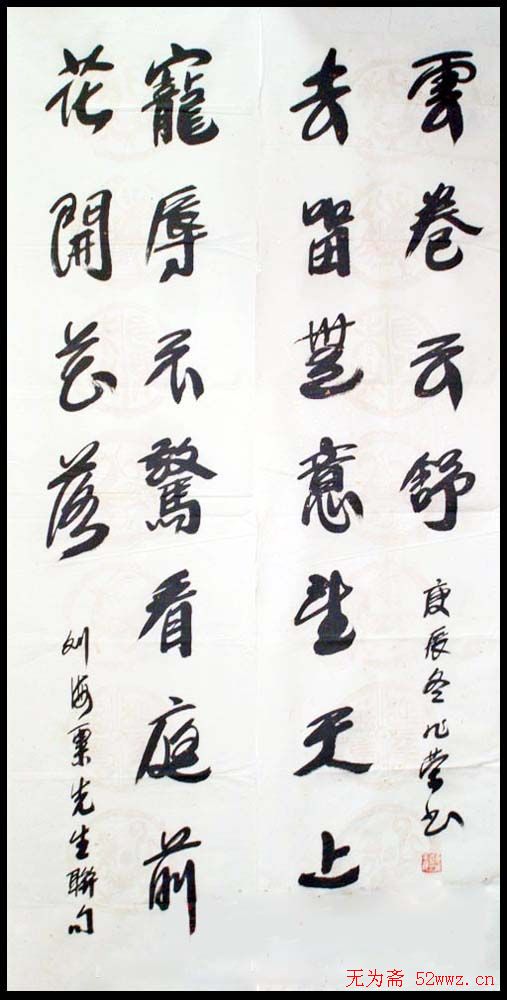 寵辱不驚看庭前
花開花落
刘海粟先生聯句
去留無意望天上
雲卷云舒
庚辰冬书
无为斋 52wwz.cn